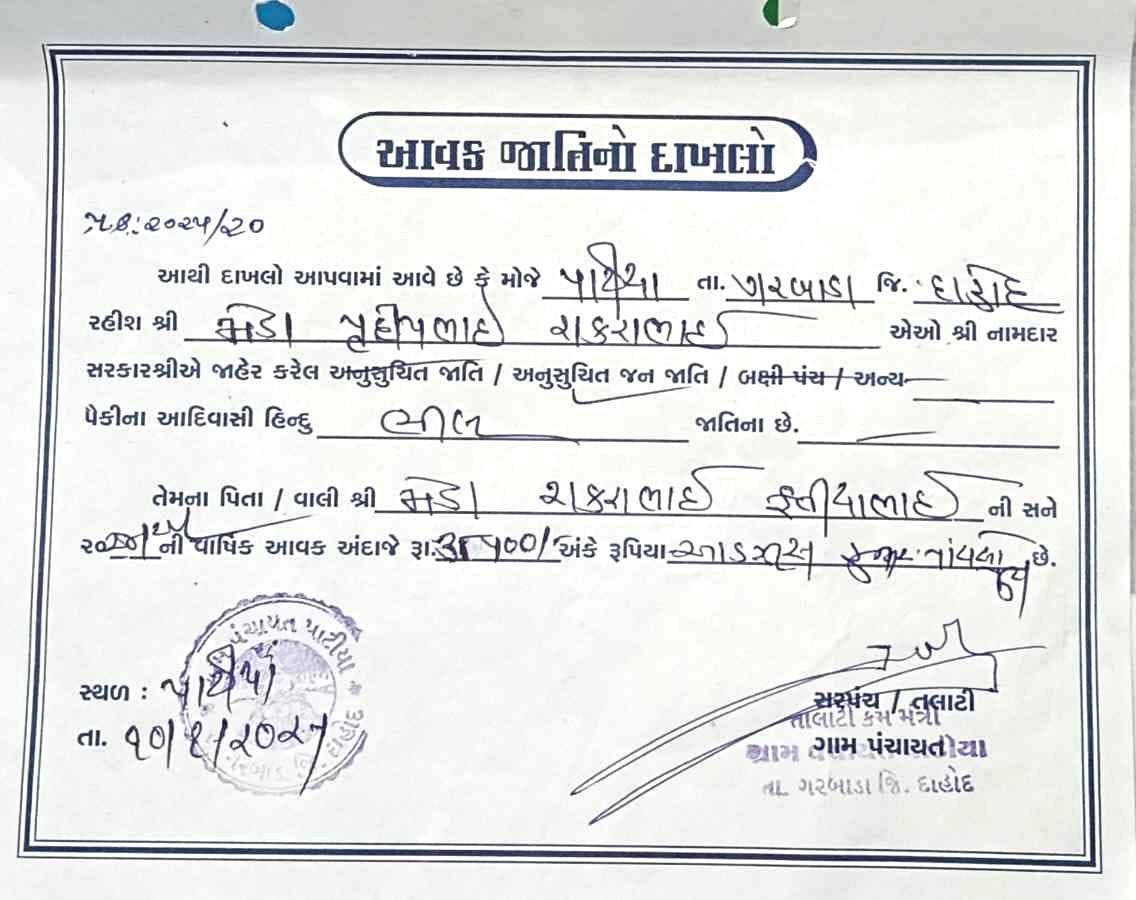 આવક જાતિનો દાખલો
જા.ક્ર.:૨૦૨૫/૨૦
આથી દાખલો આપવામાં આવે છે કે મોજે પાટીયા તા. ગરબાડા જિ. દાહોદ
રહીશ શ્રી મેડા પ્રદીપભાઈ શકરાભાઈ એઓ શ્રી નામદાર
સરકારશ્રીએ જાહેર કરેલ અનુસુચિત જાતિ / અનુસુચિત જન જાતિ / બક્ષી પંચ / અન્ય
પૈકીના આદિવાસી હિન્દુ ભીલ જાતિના છે.
તેમના પિતા / વાલી શ્રી મેડા શકરાભાઈ ની સને
ની વાર્ષિક આવક અંદાજે રૂા. અંકે રૂપિયા છે.
પંચાયત પાટીયા
સ્થળ : પાટીયા
તા. ૧૦/૬/૨૦૨૫
ગરબાડા જિ. દાહોદ
સરપંચ / તલાટી
તલાટી કમ મંત્રી
ગામ પંચાયત
ગ્રામ પંચાયત પાટીયા
તા. ગરબાડા જિ. દાહોદ